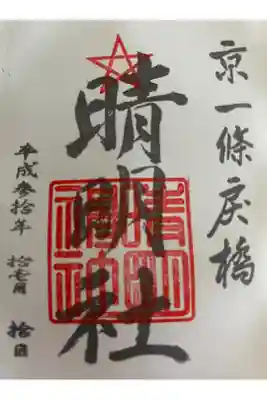 京一條戻橋
晴明社
平成参拾年 拾壱月 拾日